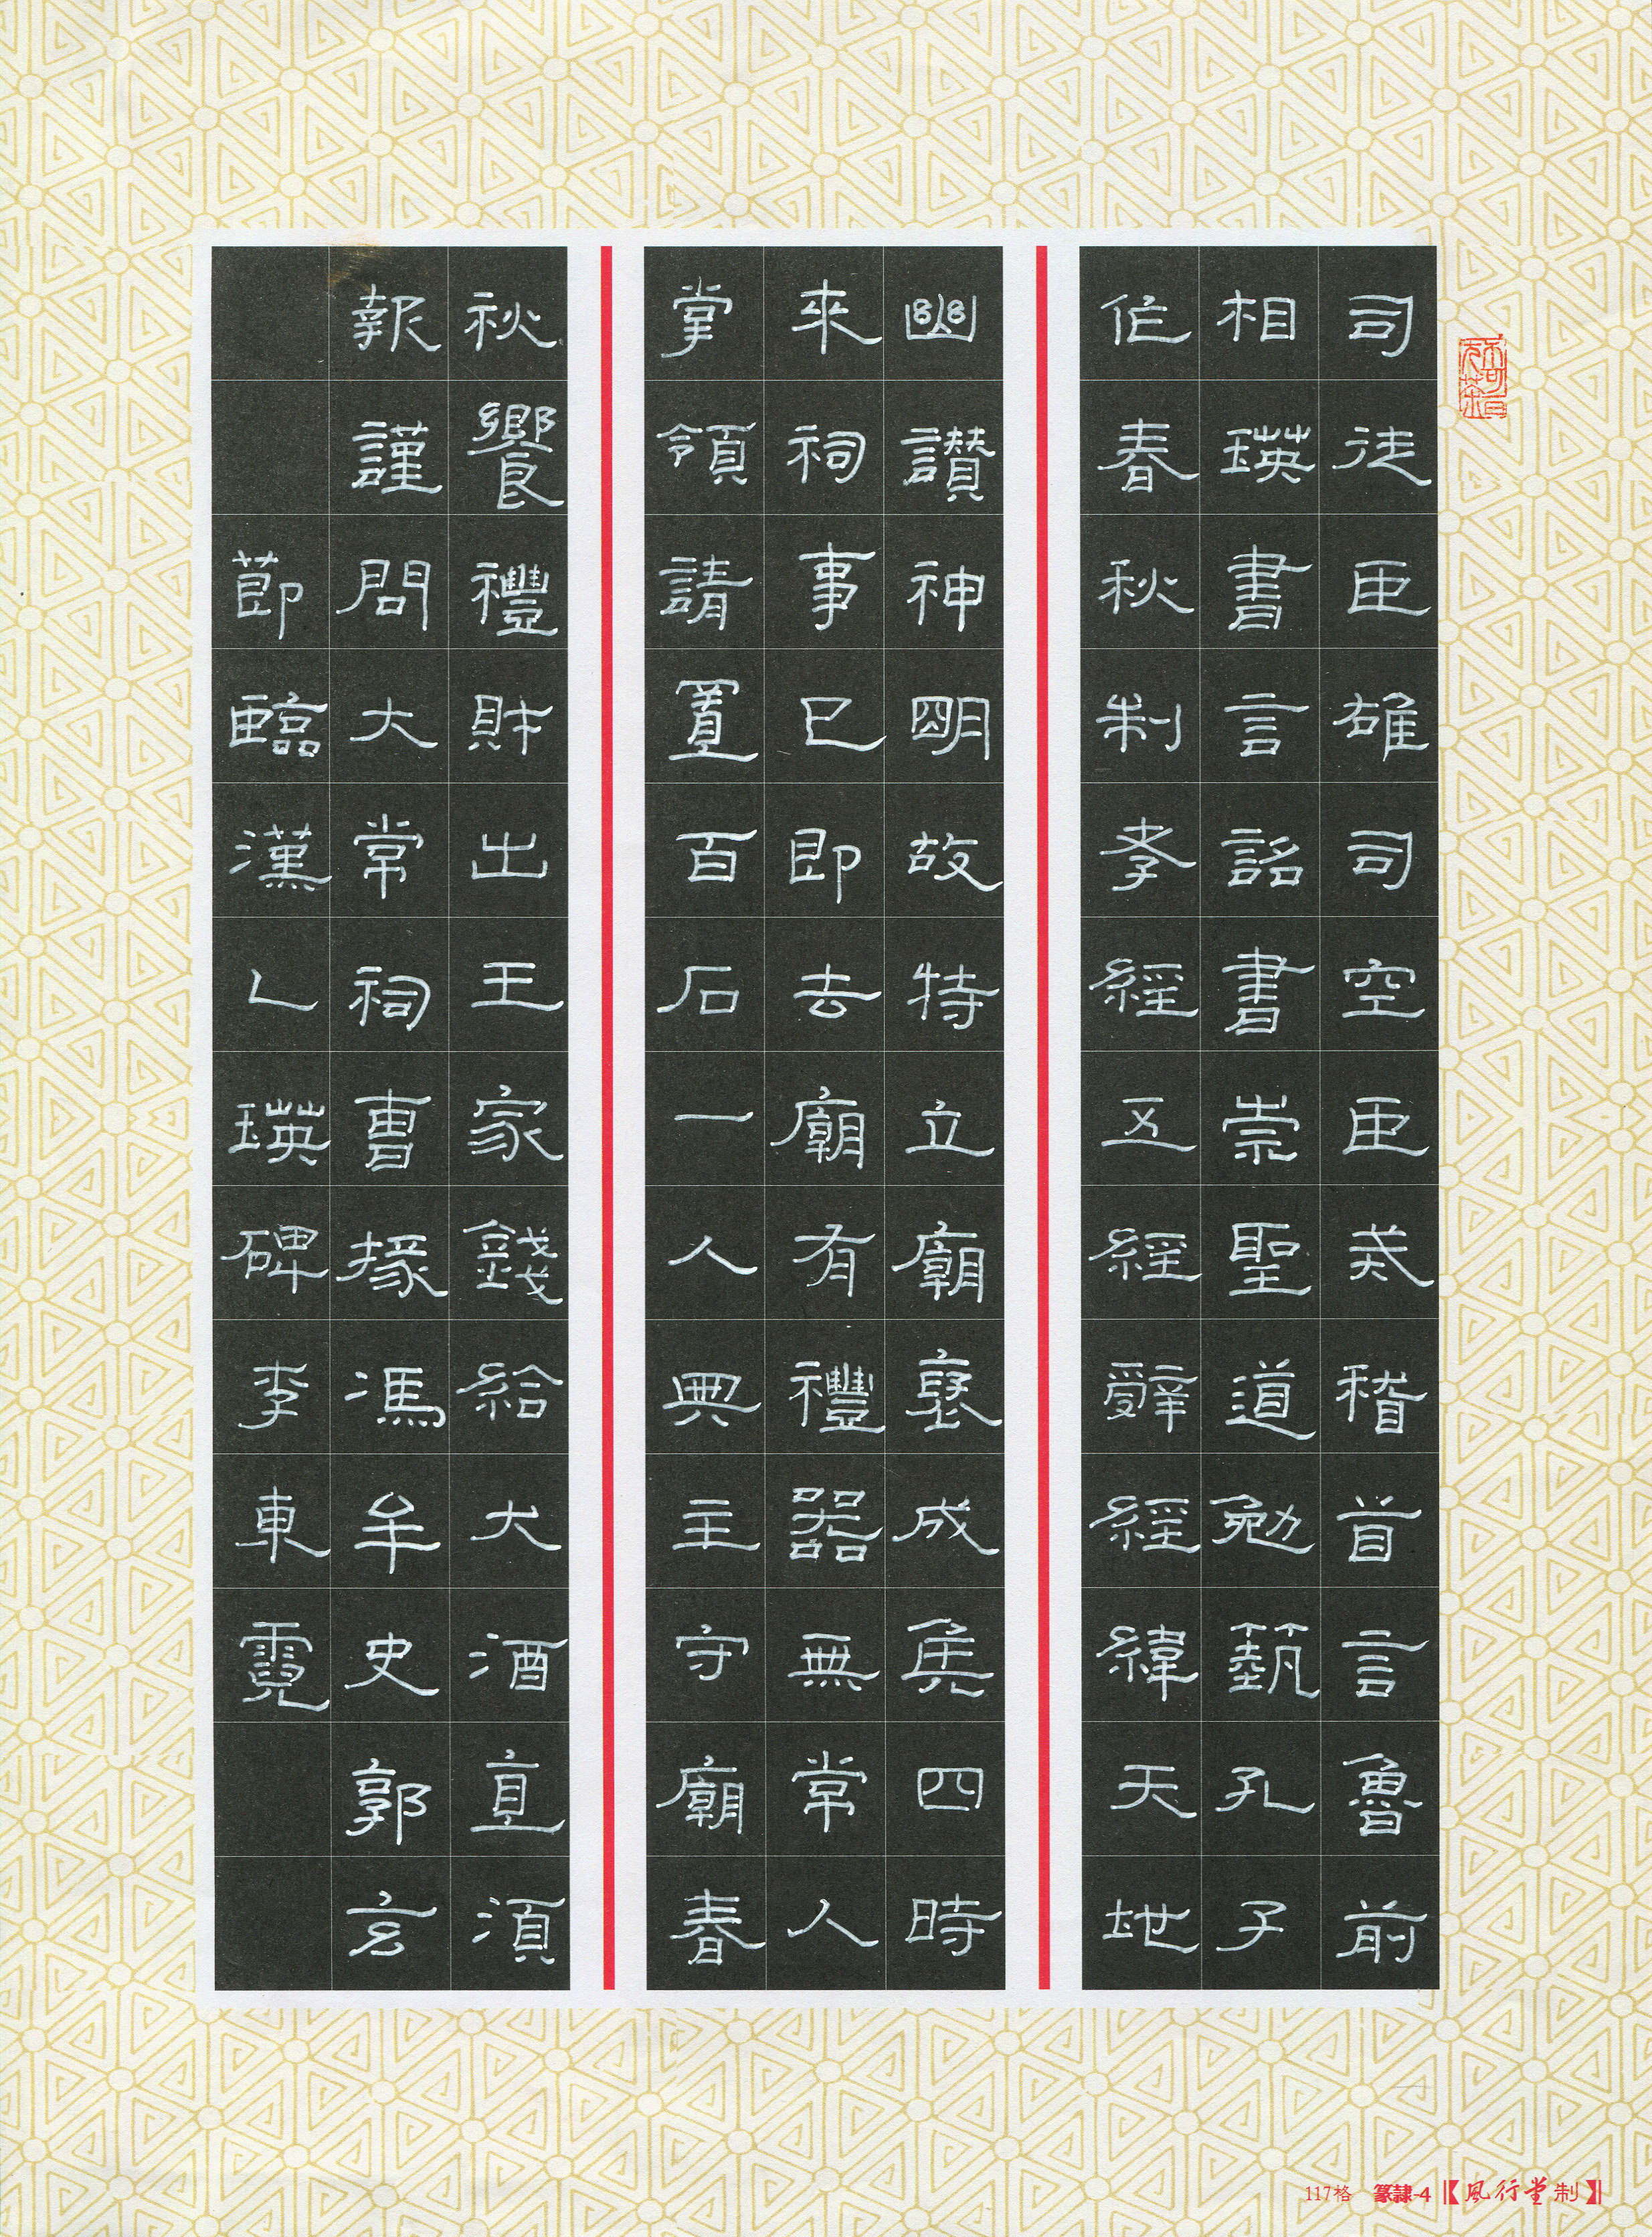 司徒臣雄司空臣戒稽首言魯前
相瑛書言詔書崇聖道勉藝孔子
作春秋制孝經五經辭經緯天地
幽讚神明故特立廟褒成侯四時
來祠事已即去廟有禮器無常人
掌領請置百石一人典主守廟春
秋饗禮財出王家錢給犬酒直須
報謹問大常祠曹掾馮牟史郭玄
節臨漢乙瑛碑李東霓
117格 篆隸-4【風行堂制】